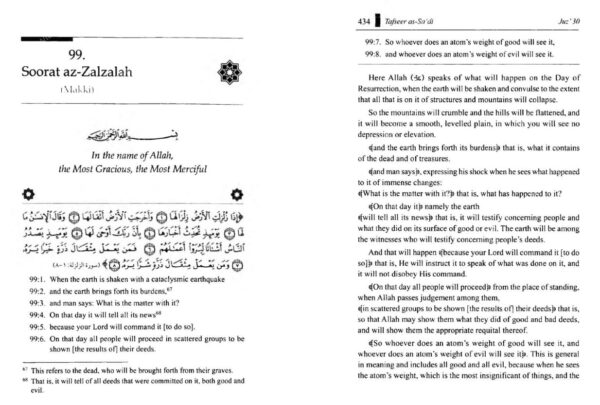 99.
Soorat az-Zalzalah
(Makki)
بِسْمِ اللَّهِ الرَّحْمَٰنِ الرَّحِيمِ
In the name of Allah,
the Most Gracious, the Most Merciful
﴿إِذَا زُلْزِلَتِ ٱلْأَرْضُ زِلْزَالَهَا ۝ وَأَخْرَجَتِ ٱلْأَرْضُ أَثْقَالَهَا ۝ وَقَالَ ٱلْإِنسَٰنُ مَا
لَهَا ۝ يَوْمَئِذٍ تُحَدِّثُ أَخْبَارَهَا ۝ بِأَنَّ رَبَّكَ أَوْحَىٰ لَهَا ۝ يَوْمَئِذٍ يَصْدُرُ
ٱلنَّاسُ أَشْتَاتًا لِّيُرَوْا۟ أَعْمَٰلَهُمْ ۝ فَمَن يَعْمَلْ مِثْقَالَ ذَرَّةٍ خَيْرًا يَرَهُۥ
۝ وَمَن يَعْمَلْ مِثْقَالَ ذَرَّةٍ شَرًّا يَرَهُۥ ۝﴾ (سورة الزلزلة: ١-٨)
99:1. When the earth is shaken with a cataclysmic earthquake
99:2. and the earth brings forth its burdens,67
99:3. and man says: What is the matter with it?
99:4. On that day it will tell all its news68
99:5. because your Lord will command it [to do so].
99:6. On that day all people will proceed in scattered groups to be
shown [the results of] their deeds.
67 This refers to the dead, who will be brought forth from their graves.
68 That is, it will tell of all deeds that were committed on it, both good and
evil.
434 Tafseer as-Sa'di Juz' 30
99:7. So whoever does an atom's weight of good will see it,
99:8. and whoever does an atom's weight of evil will see it.
Here Allah (ﷻ) speaks of what will happen on the Day of
Resurrection, when the earth will be shaken and convulse to the extent
that all that is on it of structures and mountains will collapse.
So the mountains will crumble and the hills will be flattened, and
it will become a smooth, levelled plain, in which you will see no
depression or elevation.
﴾and the earth brings forth its burdens﴿ that is, what it contains
of the dead and of treasures.
﴾and man says﴿, expressing his shock when he sees what happened
to it of immense changes:
﴾What is the matter with it?﴿ that is, what has happened to it?
﴾On that day it﴿ namely the earth
﴾will tell all its news﴿ that is, it will testify concerning people and
what they did on its surface of good or evil. The earth will be among
the witnesses who will testify concerning people's deeds.
And that will happen ﴾because your Lord will command it [to do
so]﴿ that is, He will instruct it to speak of what was done on it, and
it will not disobey His command.
﴾On that day all people will proceed﴿ from the place of standing,
when Allah passes judgement among them,
﴾in scattered groups to be shown [the results of] their deeds﴿ that is,
so that Allah may show them what they did of good and bad deeds,
and will show them the appropriate requital thereof.
﴾So whoever does an atom's weight of good will see it, and
whoever does an atom's weight of evil will see it﴿. This is general
in meaning and includes all good and all evil, because when he sees
the atom's weight, which is the most insignificant of things, and the